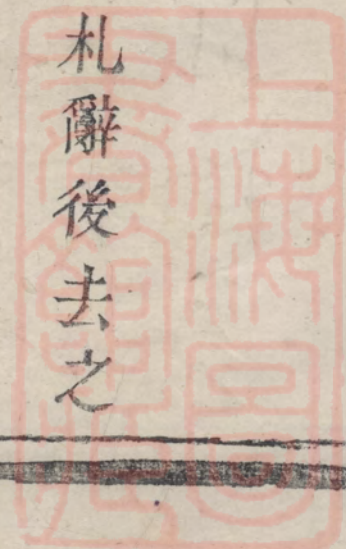 札辭後去之
上海圖
書館藏